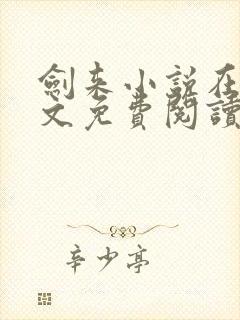 劍来小説在
文免費閱讀
辛少亭